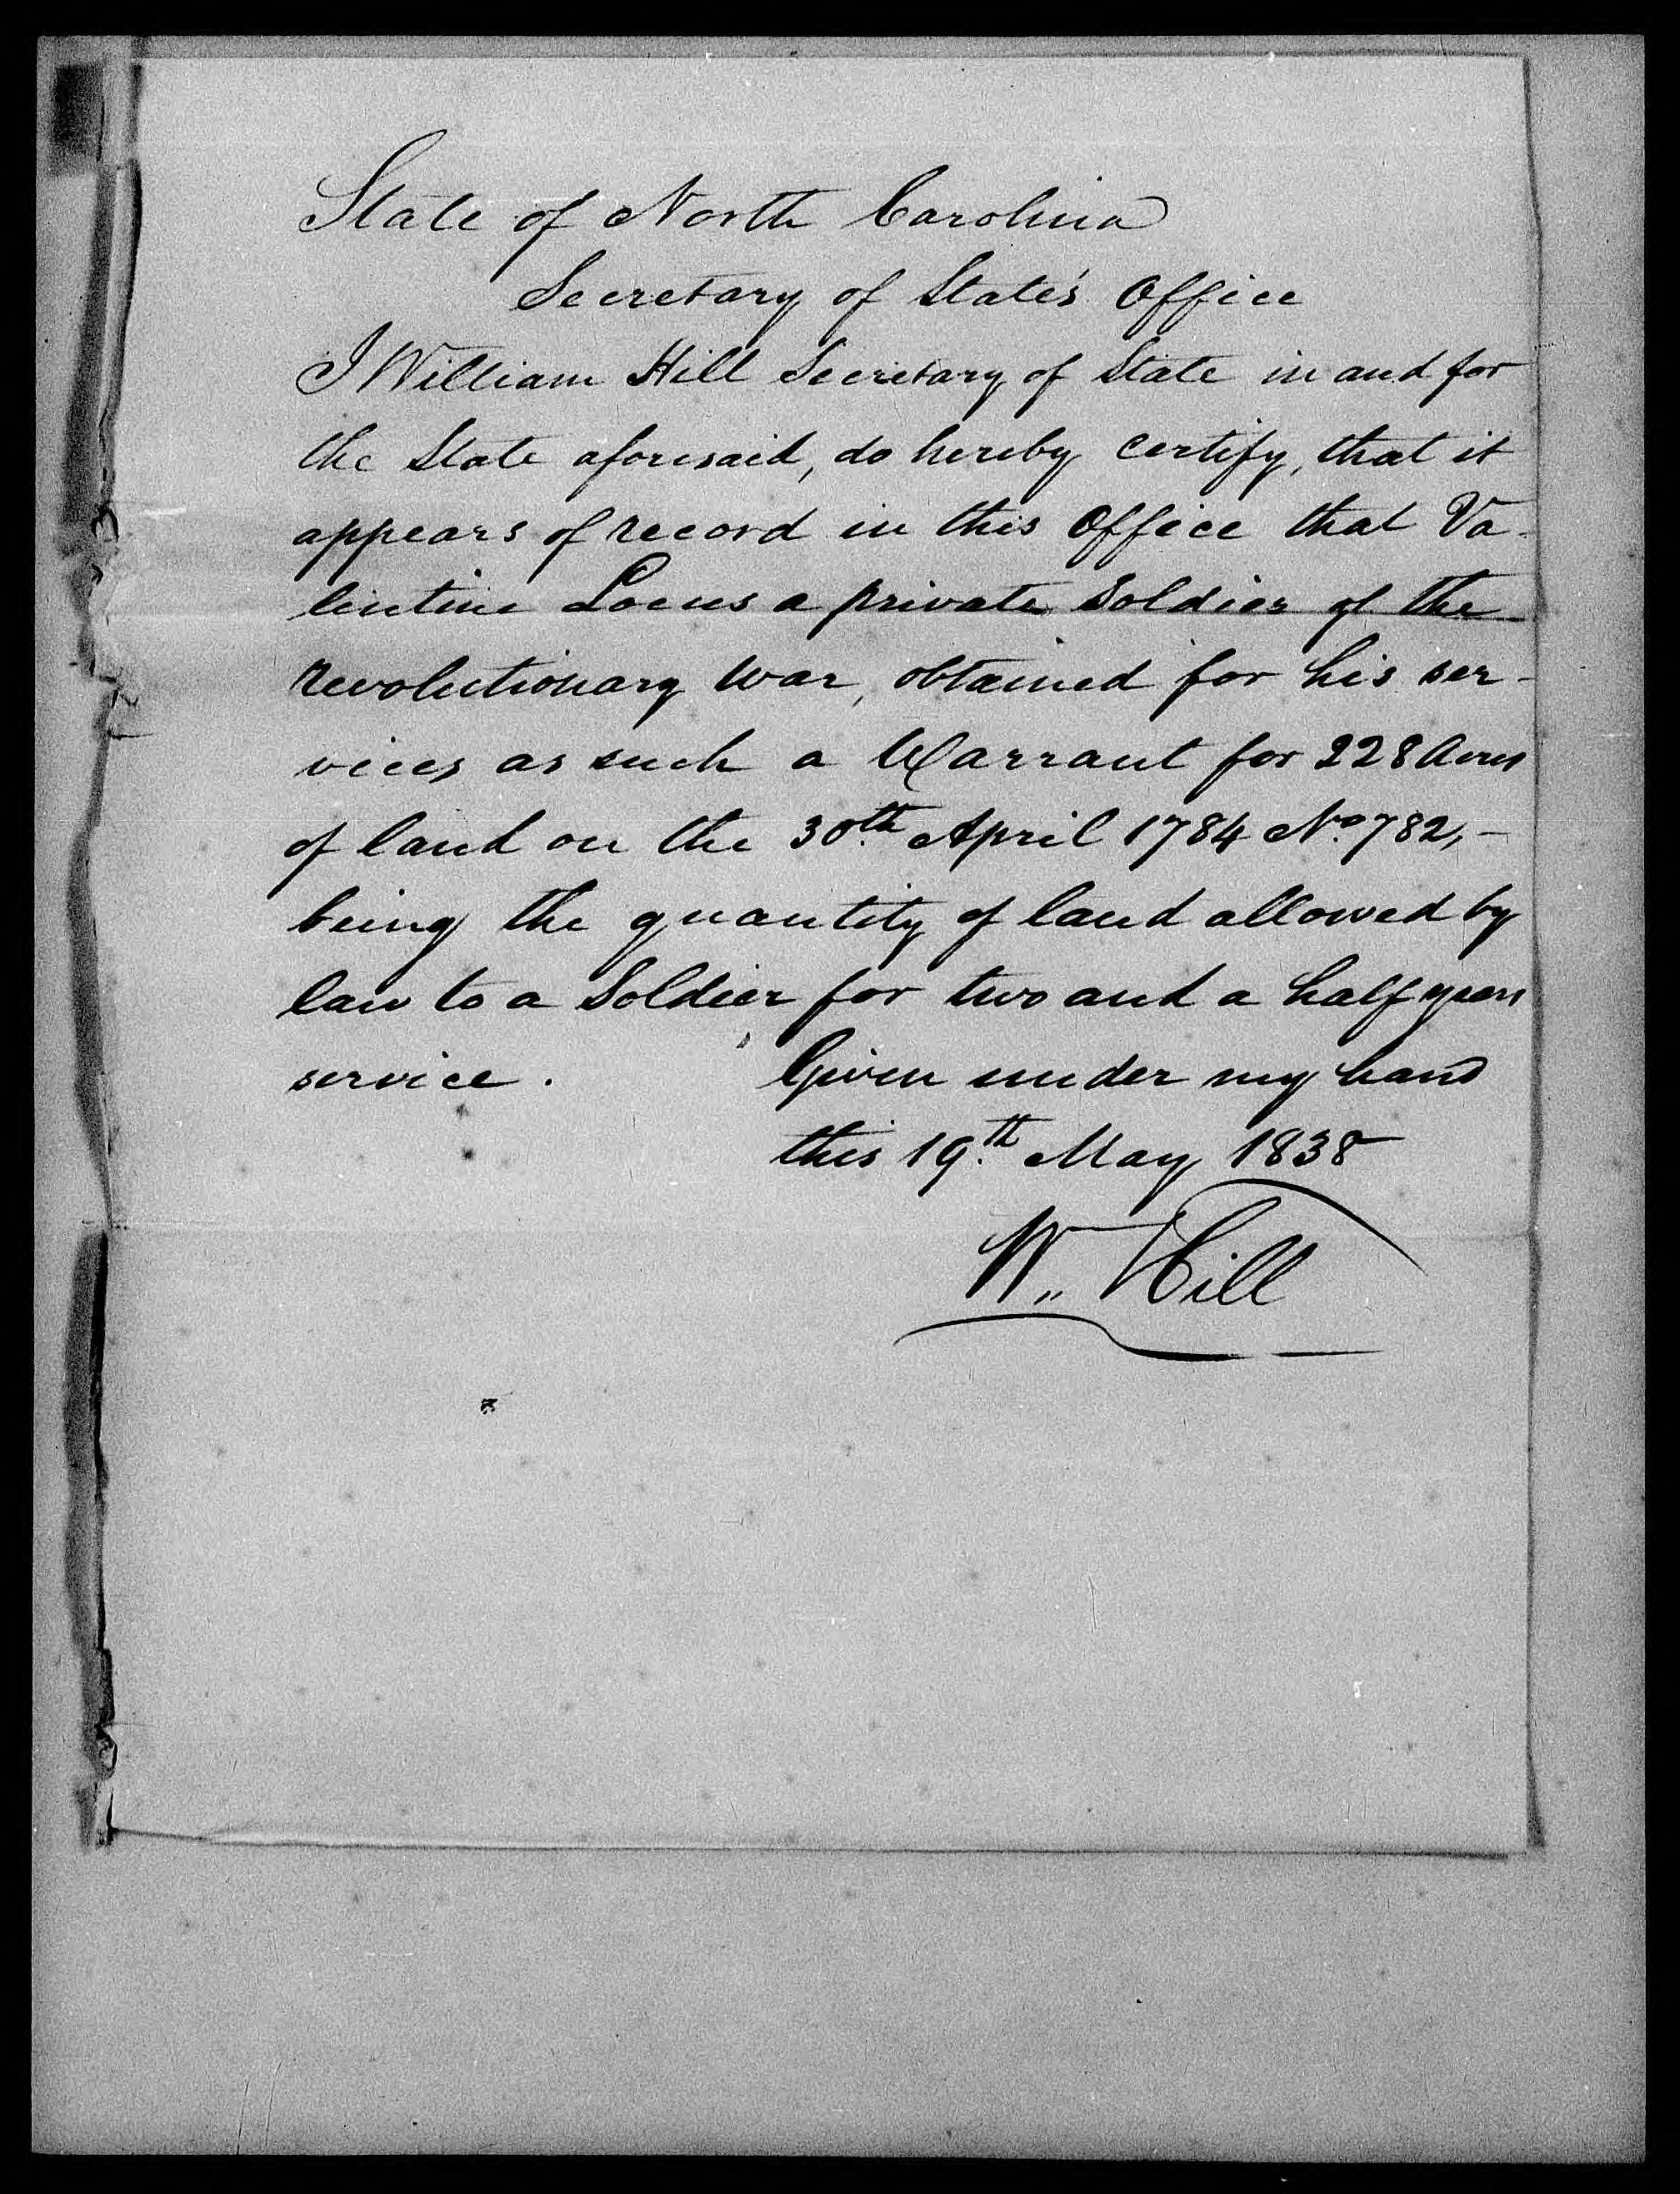 State of North Carolina
Secretary of State's Office
I William Hill Secretary of State in and for
the State aforesaid, do hereby certify, that it
appears of record in this Office that Va-
lentine Locus a private Soldier of the
revolutionary war, obtained for his ser-
vices as such a Warrant for 228 Acres
of land on the 30th April 1784 No. 782,-
being the quantity of land allowed by
law to a Soldier for two and a half years
service. Given under my hand
this 19th May 1838
Wm Hill